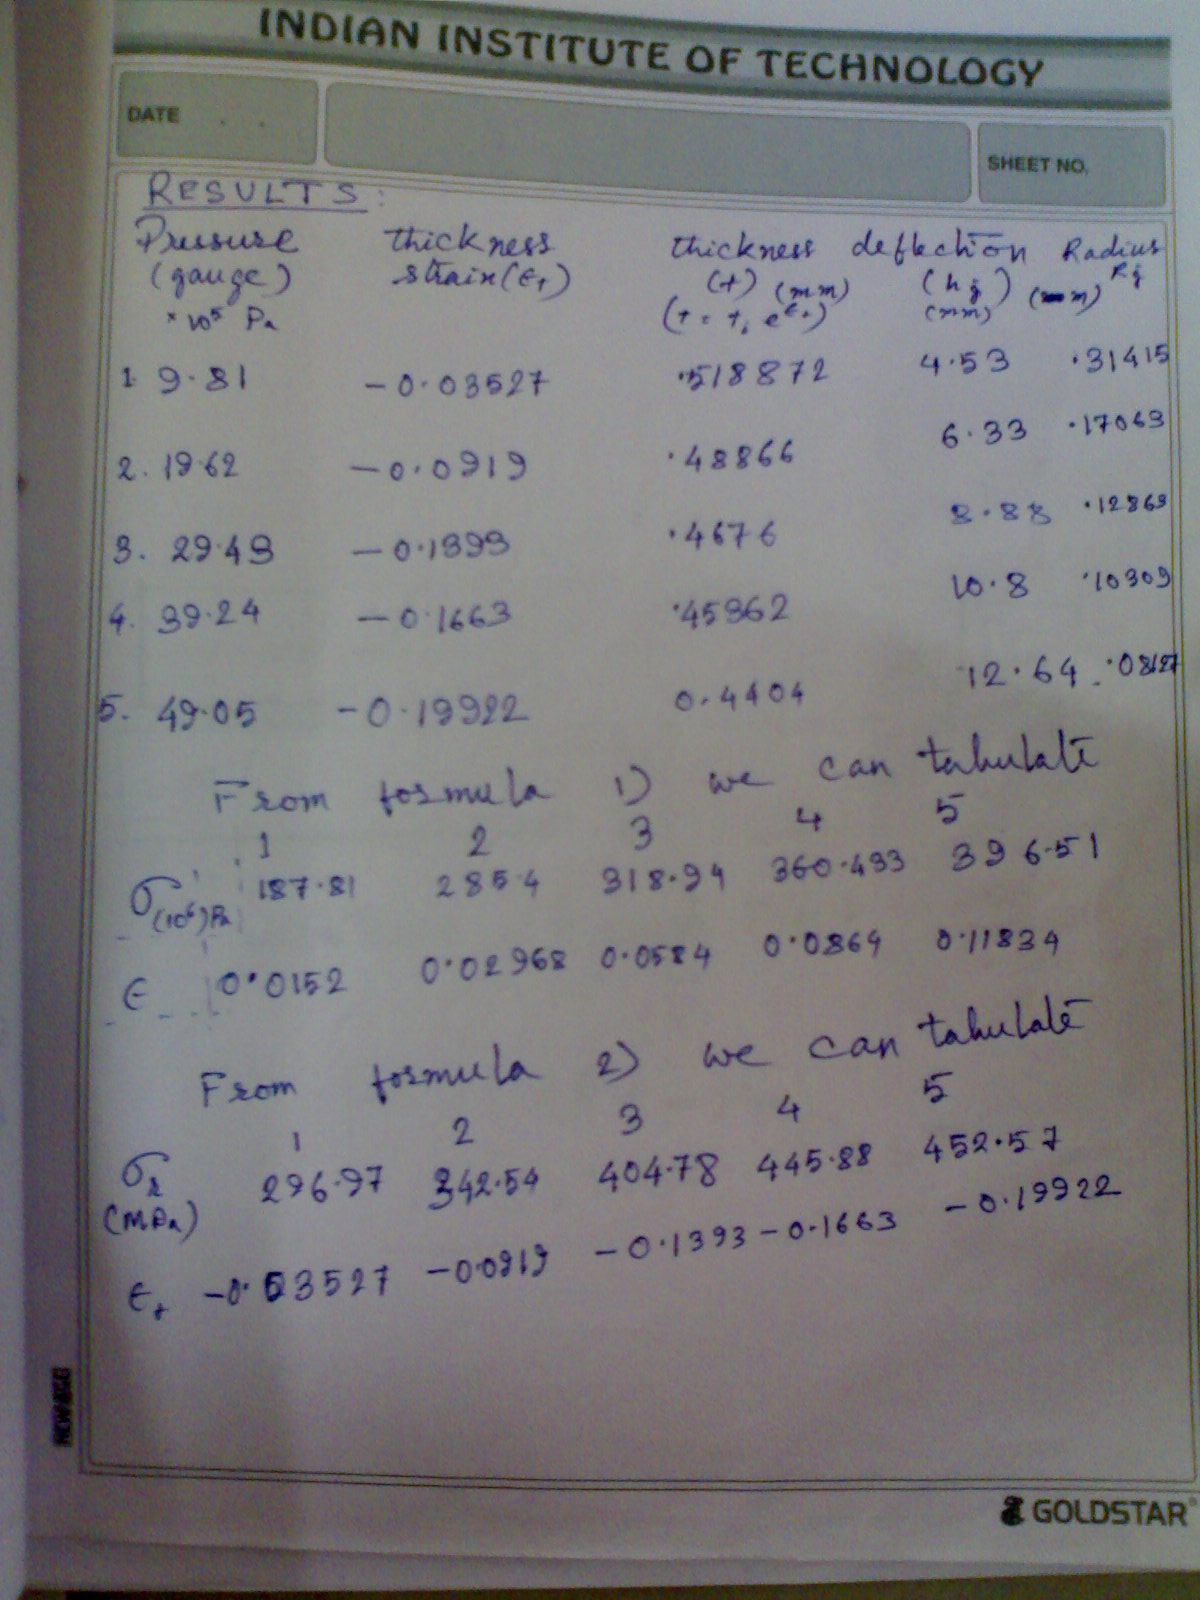 INDIAN INSTITUTE OF TECHNOLOGY
DATE
SHEET NO.
RESULTS:
Pressure thickness thickness deflection Radius
(gauge) strain(ϵt) (t) (mm) (hj) (mm) Rj
× 10⁵ Pa (t = ti e^ϵt) (mm)
1. 9.81 -0.03527 .518872 4.53 .31415
2. 19.62 -0.0919 .48866 6.33 .17063
3. 29.43 -0.1393 .4676 8.88 .12869
4. 39.24 -0.1663 .45362 10.8 .10309
5. 49.05 -0.19922 0.4404 12.64 .08127
From formula 1) we can tabulate
1 2 3 4 5
σ(10⁶)Pa 187.81 285.4 318.94 360.493 396.51
ϵ 0.0152 0.02968 0.0584 0.0864 0.11834
From formula 2) we can tabulate
1 2 3 4 5
σr 296.97 342.54 404.78 445.88 452.57
(MPa)
ϵt -0.03527 -0.0919 -0.1393 -0.1663 -0.19922
GOLDSTAR